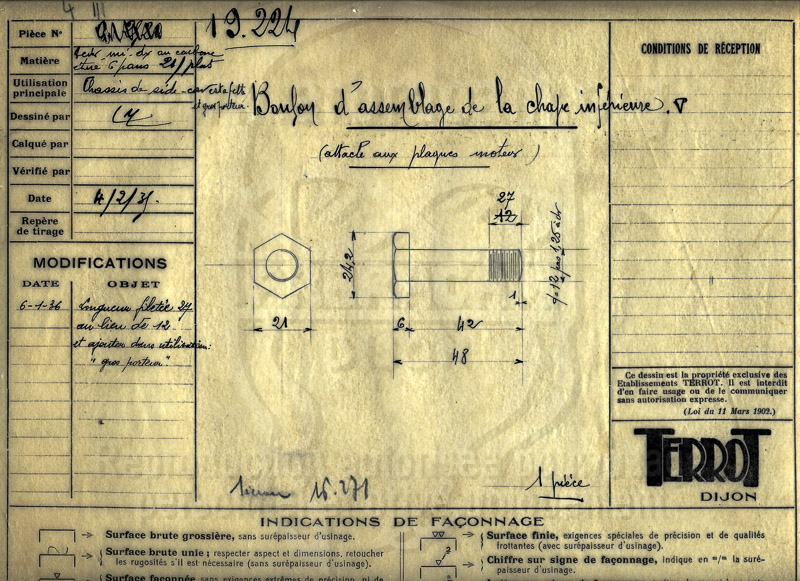 4 III
Pièce Nº
19.224
Matière
acier mi-dur au carbone
étiré 6 pans 21/plat
Utilisation
principale
Chassis de side-car
et gros porteur
Dessiné par
Calqué par
Vérifié par
Date
4/2/35.
Repère
de tirage
Boulon d'assemblage de la chape inférieure. ∇
(attache aux plaques moteur)
CONDITIONS DE RÉCEPTION
MODIFICATIONS
DATE OBJET
6-1-36 Longueur filetée 27
au lieu de 12
et ajouter dans utilisation:
"gros porteur"
27
12
24,2
1
21
6
42
48
pas 1,25 à dr
Ce dessin est la propriété exclusive des
Etablissements TERROT. Il est interdit
d'en faire usage ou de le communiquer
sans autorisation expresse.
(Loi du 11 Mars 1902.)
TERROT
DIJON
16.271
1 pièce
INDICATIONS DE FAÇONNAGE
Surface brute grossière, sans surépaisseur d'usinage.
Surface brute unie ; respecter aspect et dimensions, retoucher
les rugosités s'il est nécessaire (sans surépaisseur d'usinage).
Surface façonnée sans exigences extrêmes de précision, ni de
Surface finie, exigences spéciales de précision et de qualités
frottantes (avec surépaisseur d'usinage).
2
Chiffre sur signe de façonnage, indique en "/" la suré-
paisseur d'usinage.